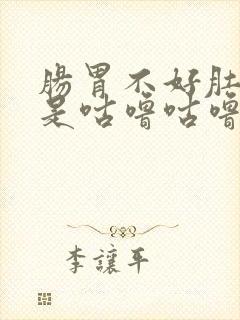 腸胃不好肚
是咕嚕咕嚕
李讓平